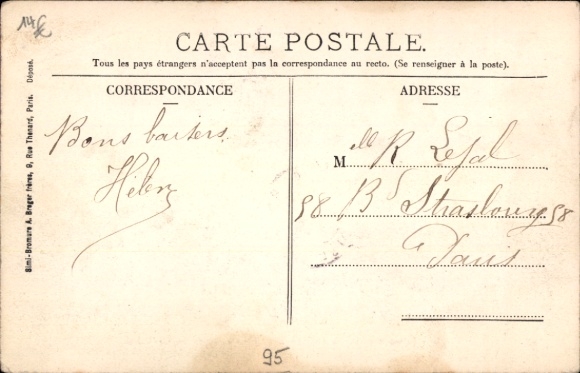 14€
CARTE POSTALE.
Tous les pays étrangers n'acceptent pas la correspondance au recto. (Se renseigner à la poste).
CORRESPONDANCE
Bons baisers
Hélène
ADRESSE
Mlle R Lejal
58 Bd Strasbourg 58
Paris
Simi-Bromure A. Breger frères, 9, Rue Thenard, Paris. Déposé.
95